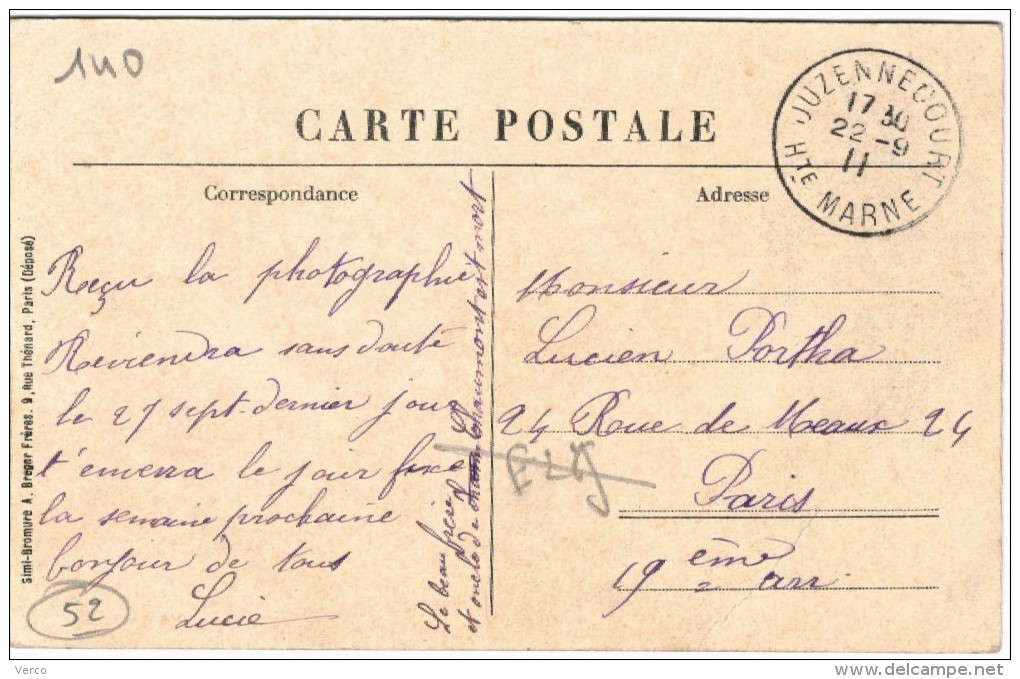 140
JUZENNECOURT
17 30
22 - 9
11
HTE MARNE
CARTE POSTALE
Correspondance
Adresse
Reçu la photographie
Reviendra sans doute
le 27 sept. dernier jour
t'enverra le jour fixe
la semaine prochaine
bonjour de tous
Lucie
Le beau frère
et oncle de Chaumont est mort
Monsieur
Lucien Portha
24 Rue de Meaux 24
Paris
19 ème arr
52
Simi-Bromure A. Breger Frères. 9, Rue Thénard, Paris (Déposé)
Verco
www.delcampe.net